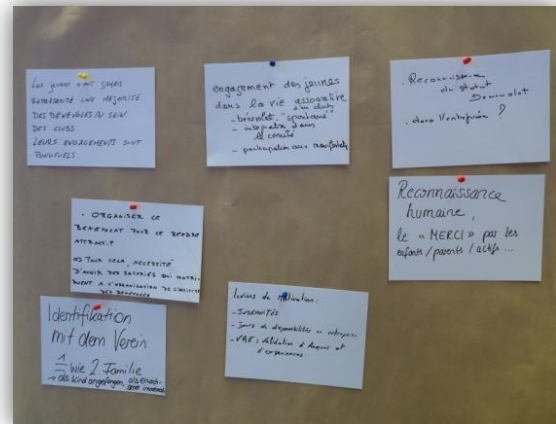 Les jeunes n'ont jamais
représenté une majorité
des bénévoles au sein
des clubs
Leurs engagements sont
ponctuels
engagement des jeunes
dans la vie associative
d'un club
- bénévolat "spontané"
- intégration dans
le comité
- participation aux manifestations
. Reconnaissance
du statut
Bénévolat
. dans l'entreprise ?
. ORGANISER LE
BENEVOLAT POUR LE RENDRE
ATTRACTIF
=> POUR CELA, NECESSITÉ
D'AVOIR DES SALARIÉS QUI
A L'ORGANISATION DE
DES BENEVOLES
Reconnaissance
humaine,
le « MERCI » par les
enfants / parents / actifs ...
Identifikation
mit dem Verein
≙ wie 2 Familie
→ als Kind angefangen,
Leviers de Motivation :
- INDEMNITÉS
- Jours de disponibilités en entreprise
- VAE : Validation d'Acquis et
d'expériences